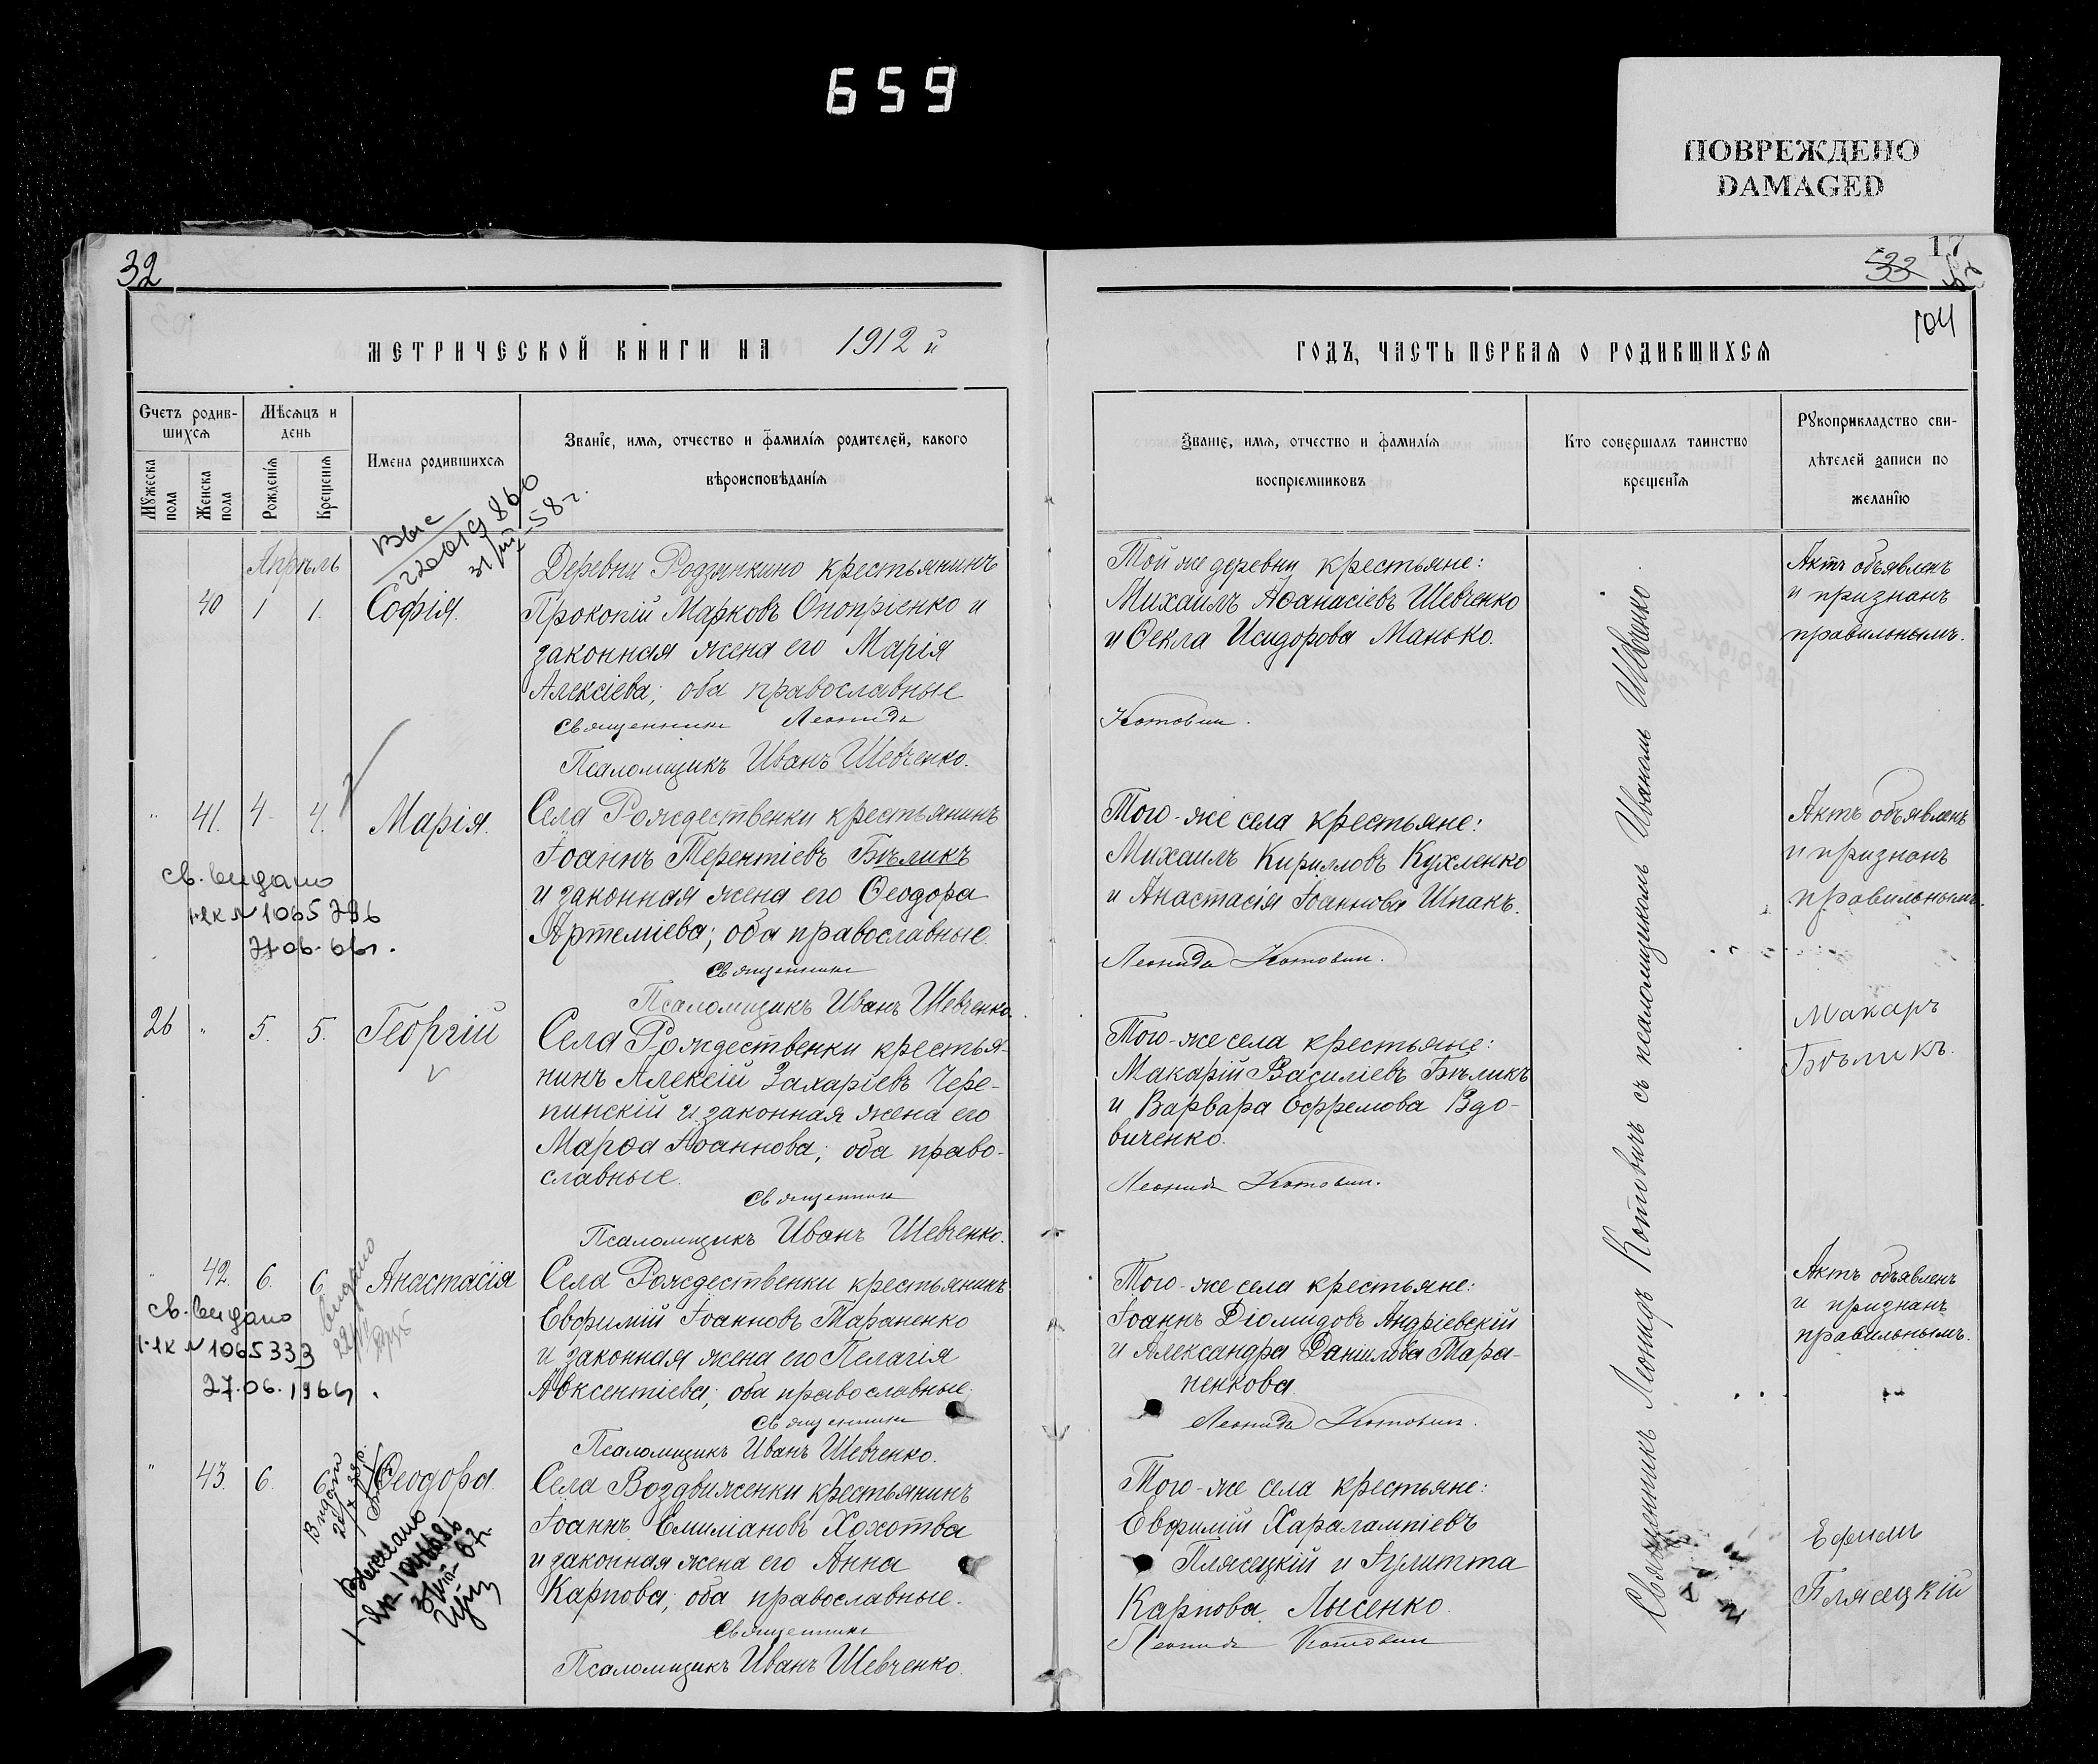 659
ПОВРЕЖДЕНО
DAMAGED
32
МЕТРИЧЕСКОЙ КНИГИ НА 1912 й
Счетъ родив-
шихся
Мѣсяцъ и
день
Мужеска пола
Женска пола
Рожденія
Крещенія
Имена родившихся
Званіе, имя, отчество и фамилія родителей, какого
вѣроисповѣданія
Апрѣль
40 1 1. Софія.
Деревни Родзянкино крестьянинъ
Прокопій Марковъ Онопріенко и
законная жена его Марія
Алексіева; оба православные
Священникъ Леонидъ
Псаломщикъ Иванъ Шевченко.
" 41. 4 4. Марія.
Села Рождественки крестьянинъ
Іоаннъ Терентіевъ Бѣликъ
и законная жена его Ѳеодора
Артеміева; оба православные.
Священникъ
Псаломщикъ Иванъ Шевченко.
св. видано
1-ЛК №1065
26 " 5. 5. Георгій
Села Рождественки крестья-
нинъ Алексій Захаріевъ Чере-
пинскій и законная жена его
Марѳа Іоаннова; оба право-
славные.
Священникъ
Псаломщикъ Иванъ Шевченко.
" 42. 6. 6. Анастасія
Села Рождественки крестьянинъ
Евфимій Іоанновъ Тараненко
и законная жена его Пелагія
Авксентіева; оба православные.
Священникъ
Псаломщикъ Иванъ Шевченко.
св. видано
1-ЛК №1065333
27.06.1966
" 43. 6. 6 Ѳеодора.
Села Воздвиженки крестьянинъ
Іоаннъ Емиліановъ Хохотва
и законная жена его Анна
Карпова; оба православные.
Священникъ
Псаломщикъ Иванъ Шевченко.
17
33
104
ГОДЪ, ЧАСТЬ ПЕРВАЯ О РОДИВШИХСЯ
Званіе, имя, отчество и фамилія
воспріемниковъ
Кто совершалъ таинство
крещенія
Рукоприкладство сви-
дѣтелей записи по
желанію
Той же деревни крестьяне:
Михаилъ Аѳанасіевъ Шевченко
и Ѳекла Исидорова Манько.
Котовичъ.
Актъ объявленъ
и признанъ
правильнымъ.
Того-же села крестьяне:
Михаилъ Кирилловъ Кухленко
и Анастасія Іоаннова Шпакъ.
Леонидъ Котовичъ.
Актъ объявленъ
и признанъ
правильнымъ.
Того-же села крестьяне:
Макарій Василіевъ Бѣликъ
и Варвара Ефремова Вдо-
виченко.
Леонидъ Котовичъ.
Макаръ
Бѣликъ.
Того-же села крестьяне:
Іоаннъ Діомидовъ Андріевскій
и Александра Даніилова Тара-
ненкова.
Леонидъ Котовичъ.
Актъ объявленъ
и признанъ
правильнымъ.
Того-же села крестьяне:
Евфимій Харалампіевъ
Плясецкій и Іулитта
Карпова Лысенко.
Леонидъ Котовичъ
Ефимъ
Плясецкій
Священникъ Леонидъ Котовичъ съ псаломщикомъ Иваномъ Шевченко.